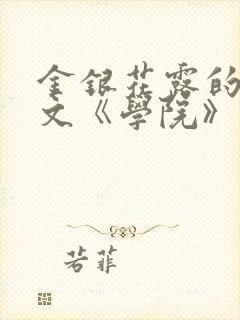 金銀花露的
文《學院》
若菲